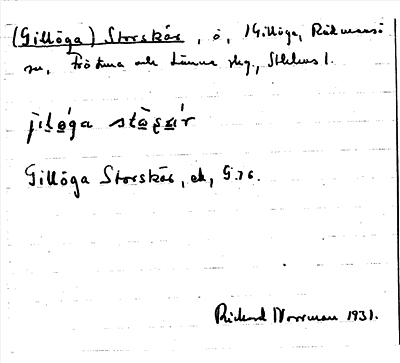 (Gillöga) Storskär, ö, i Gillöga, Rådmansö
sn, Frötuna och Länna skg., Sthlms l.
Gillöga Storskär, ek, G.76.
Rickard Norrman 1931.